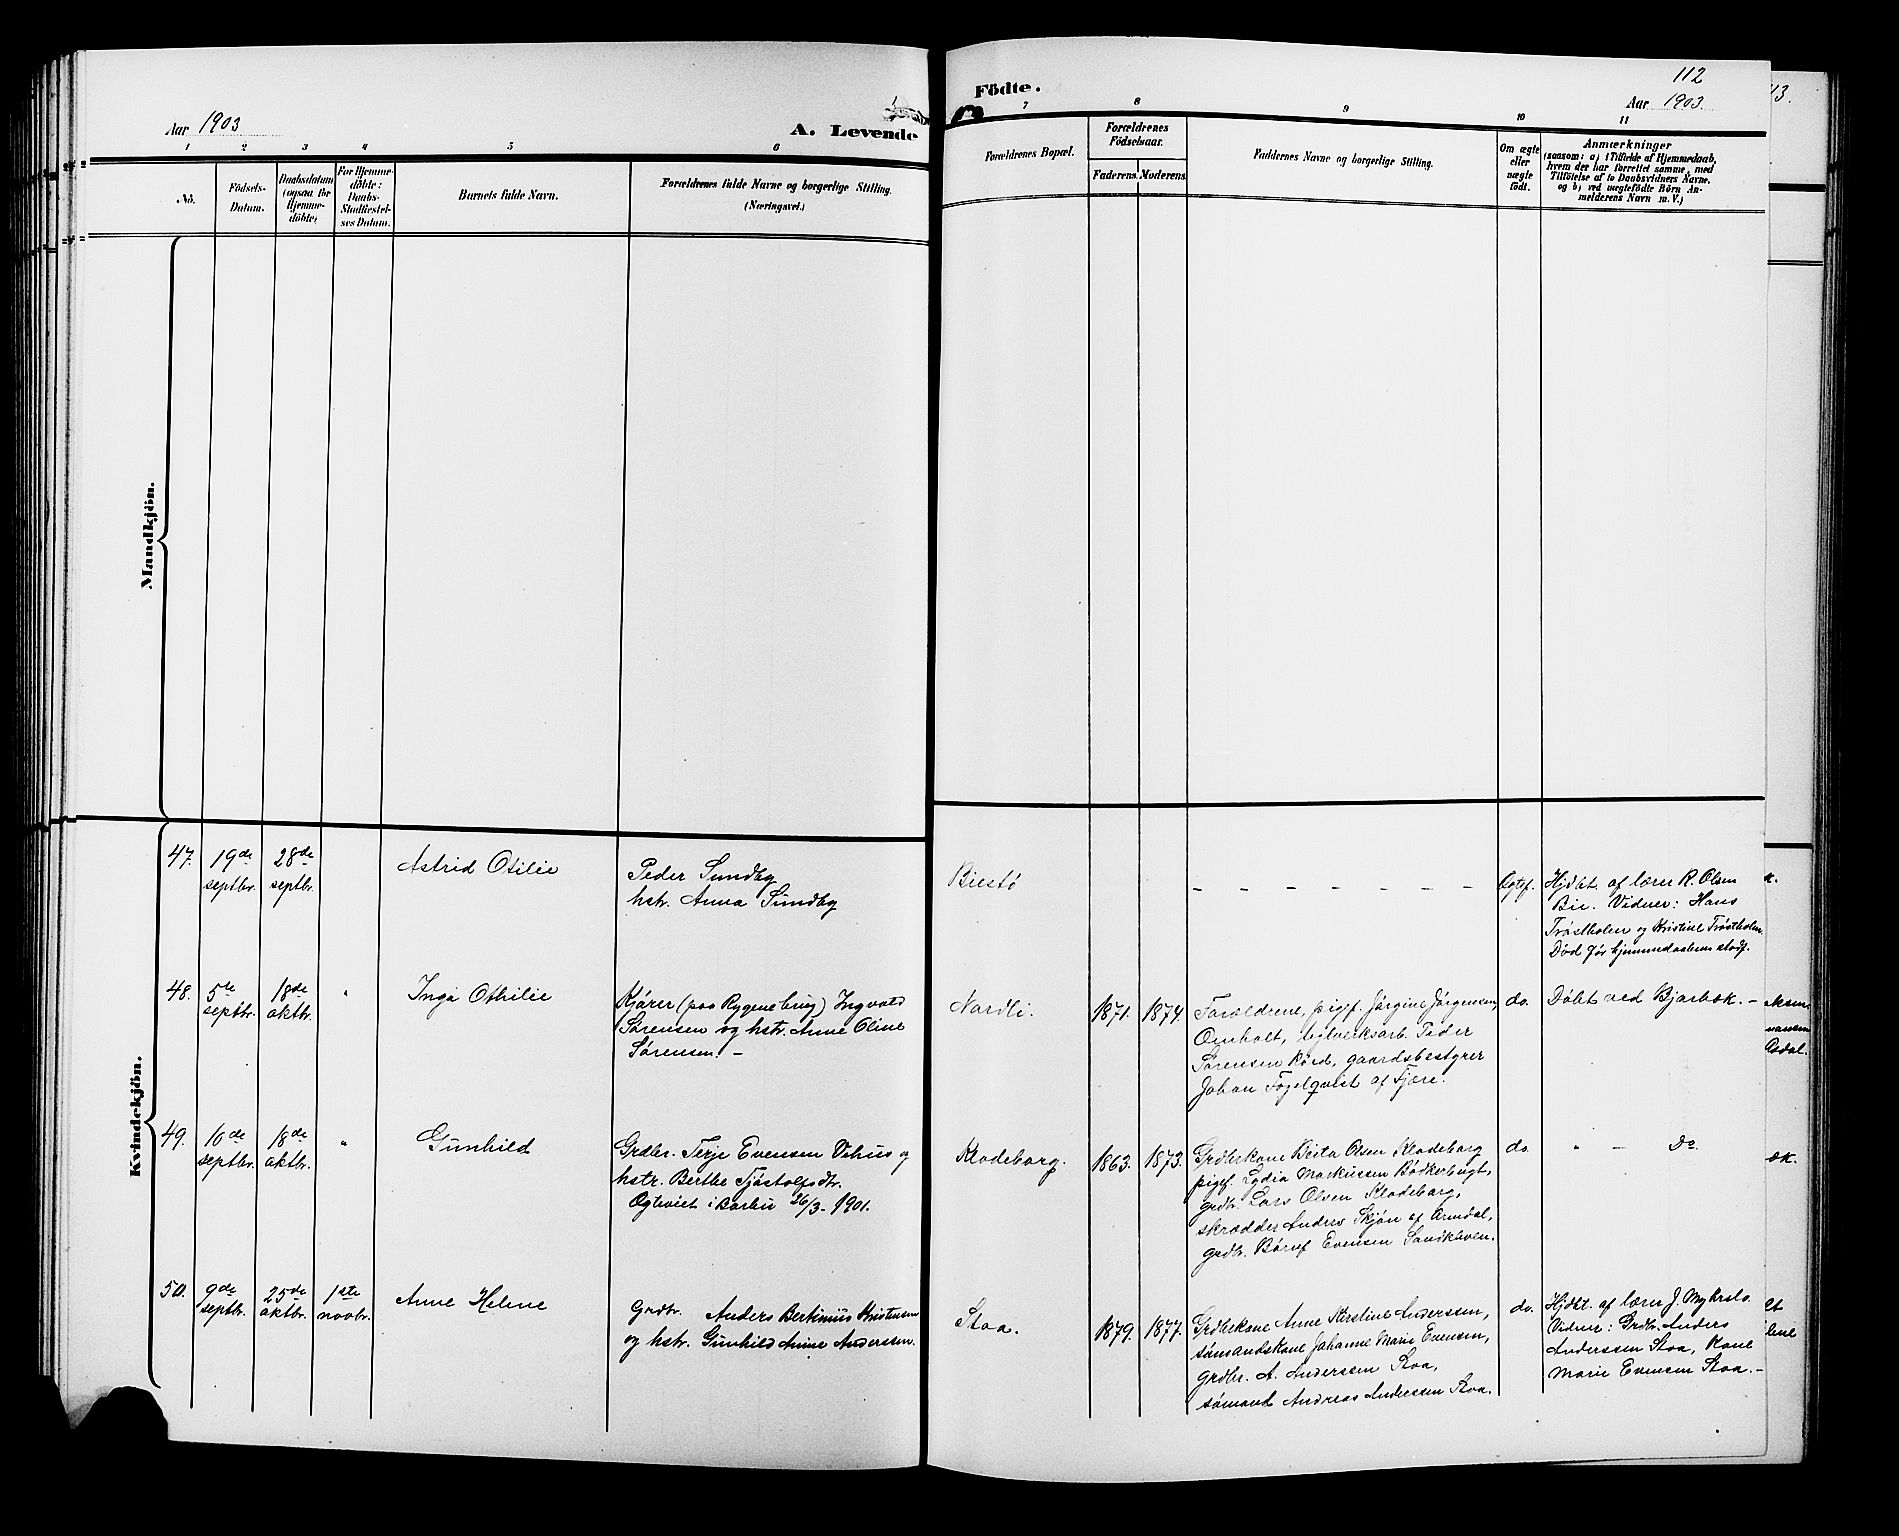 Aar 1903
A. Levende
Födte.
112
Aar 1903.
13.
1 2 3 4 5 6
7 8 9 10 11
No.
Födsels-
Datum.
Daabsdatum
(ogsaa for
Hjemme-
döbte)
For Hjemme-
döbte:
Daabs-
Stadfæstel-
ses Datum.
Barnets fulde Navn.
Forældrenes fulde Navne og borgerlige Stilling.
(Næringsvei.)
Forældrenes Bopæl.
Forældrenes
Födselsaar.
Faderens. Moderens.
Faddernes Navne og borgerlige Stilling.
Om ægte
eller
uægte
födt.
Anmærkninger
(saasom: a) i Tilfælde af Hjemmedaab,
hvem der har forrettet samme, med
Tilföielse af to Daabsvidners Navne,
og b) ved uægtefödte Börn An-
melderens Navn m. V.)
Mandkjön.
Kvindekjön.
47.
19de
septbr.
28de
septbr.
Astrid Otilie
Peder Sundby
hstr. Anna Sundby
Biestø
- - - - - - - -
Ægtef.
Hjdbt. af lærer R. Olsen
Bie. Vidner: Hans
Trøstholen og Kristine Trøstholen.
Død før hjemmedaabens stadf.
48.
5te
septbr.
18de
oktbr.
"
Inga Othilie
Kjører (paa Rygene brug) Ingvald
Sørensen og hstr. Anne Oline
Sørensen. –
Nardli.
1871. 1874.
Forældrene, pigef. Jørgine Jørgensen,
Omholt, teglverksarb. Peder
Sørensen Roed, gaardsbestyrer
Johan Fogelqvist af Fjære.
do.
Døbt ved Bjorbæk. –
49.
10de
septbr.
18de
oktbr.
"
Gunhild
Grdbr. Terje Evensen Vehus og
hstr. Berthe Tjøstolfsdtr.
Ægteviet i Barbu 26/3-1901.
Klodeborg.
1863. 1873.
Grdbrkone Berta Olsen Klodeborg
pigef. Lydia Markussen Bødkerbugt,
grdbr. Lars Olsen Klodeborg,
skrædder Anders Skjøn af Arendal,
grdbr. Børuf Evensen Sandkleven.
do.
" – Do.
50.
9de
septbr.
25de
oktbr.
1ste
novbr.
Anne Helene
Grdbr. Anders Bertinius Kristensen
og hstr. Gunhild Anne Anderssen.
Stoa.
1879. 1877.
Grdbrkone Anne Kerstine Anderssen,
sømandskone Johanne Marie Evensen,
grdbr. A. Anderssen Stoa,
sømand Andreas Anderssen Stoa.
do.
Hjdbt. af lærer J. Mykrslo.
Vidner: Grdbr. Anders
Anderssen Stoa, kone
Marie Evensen Stoa. –